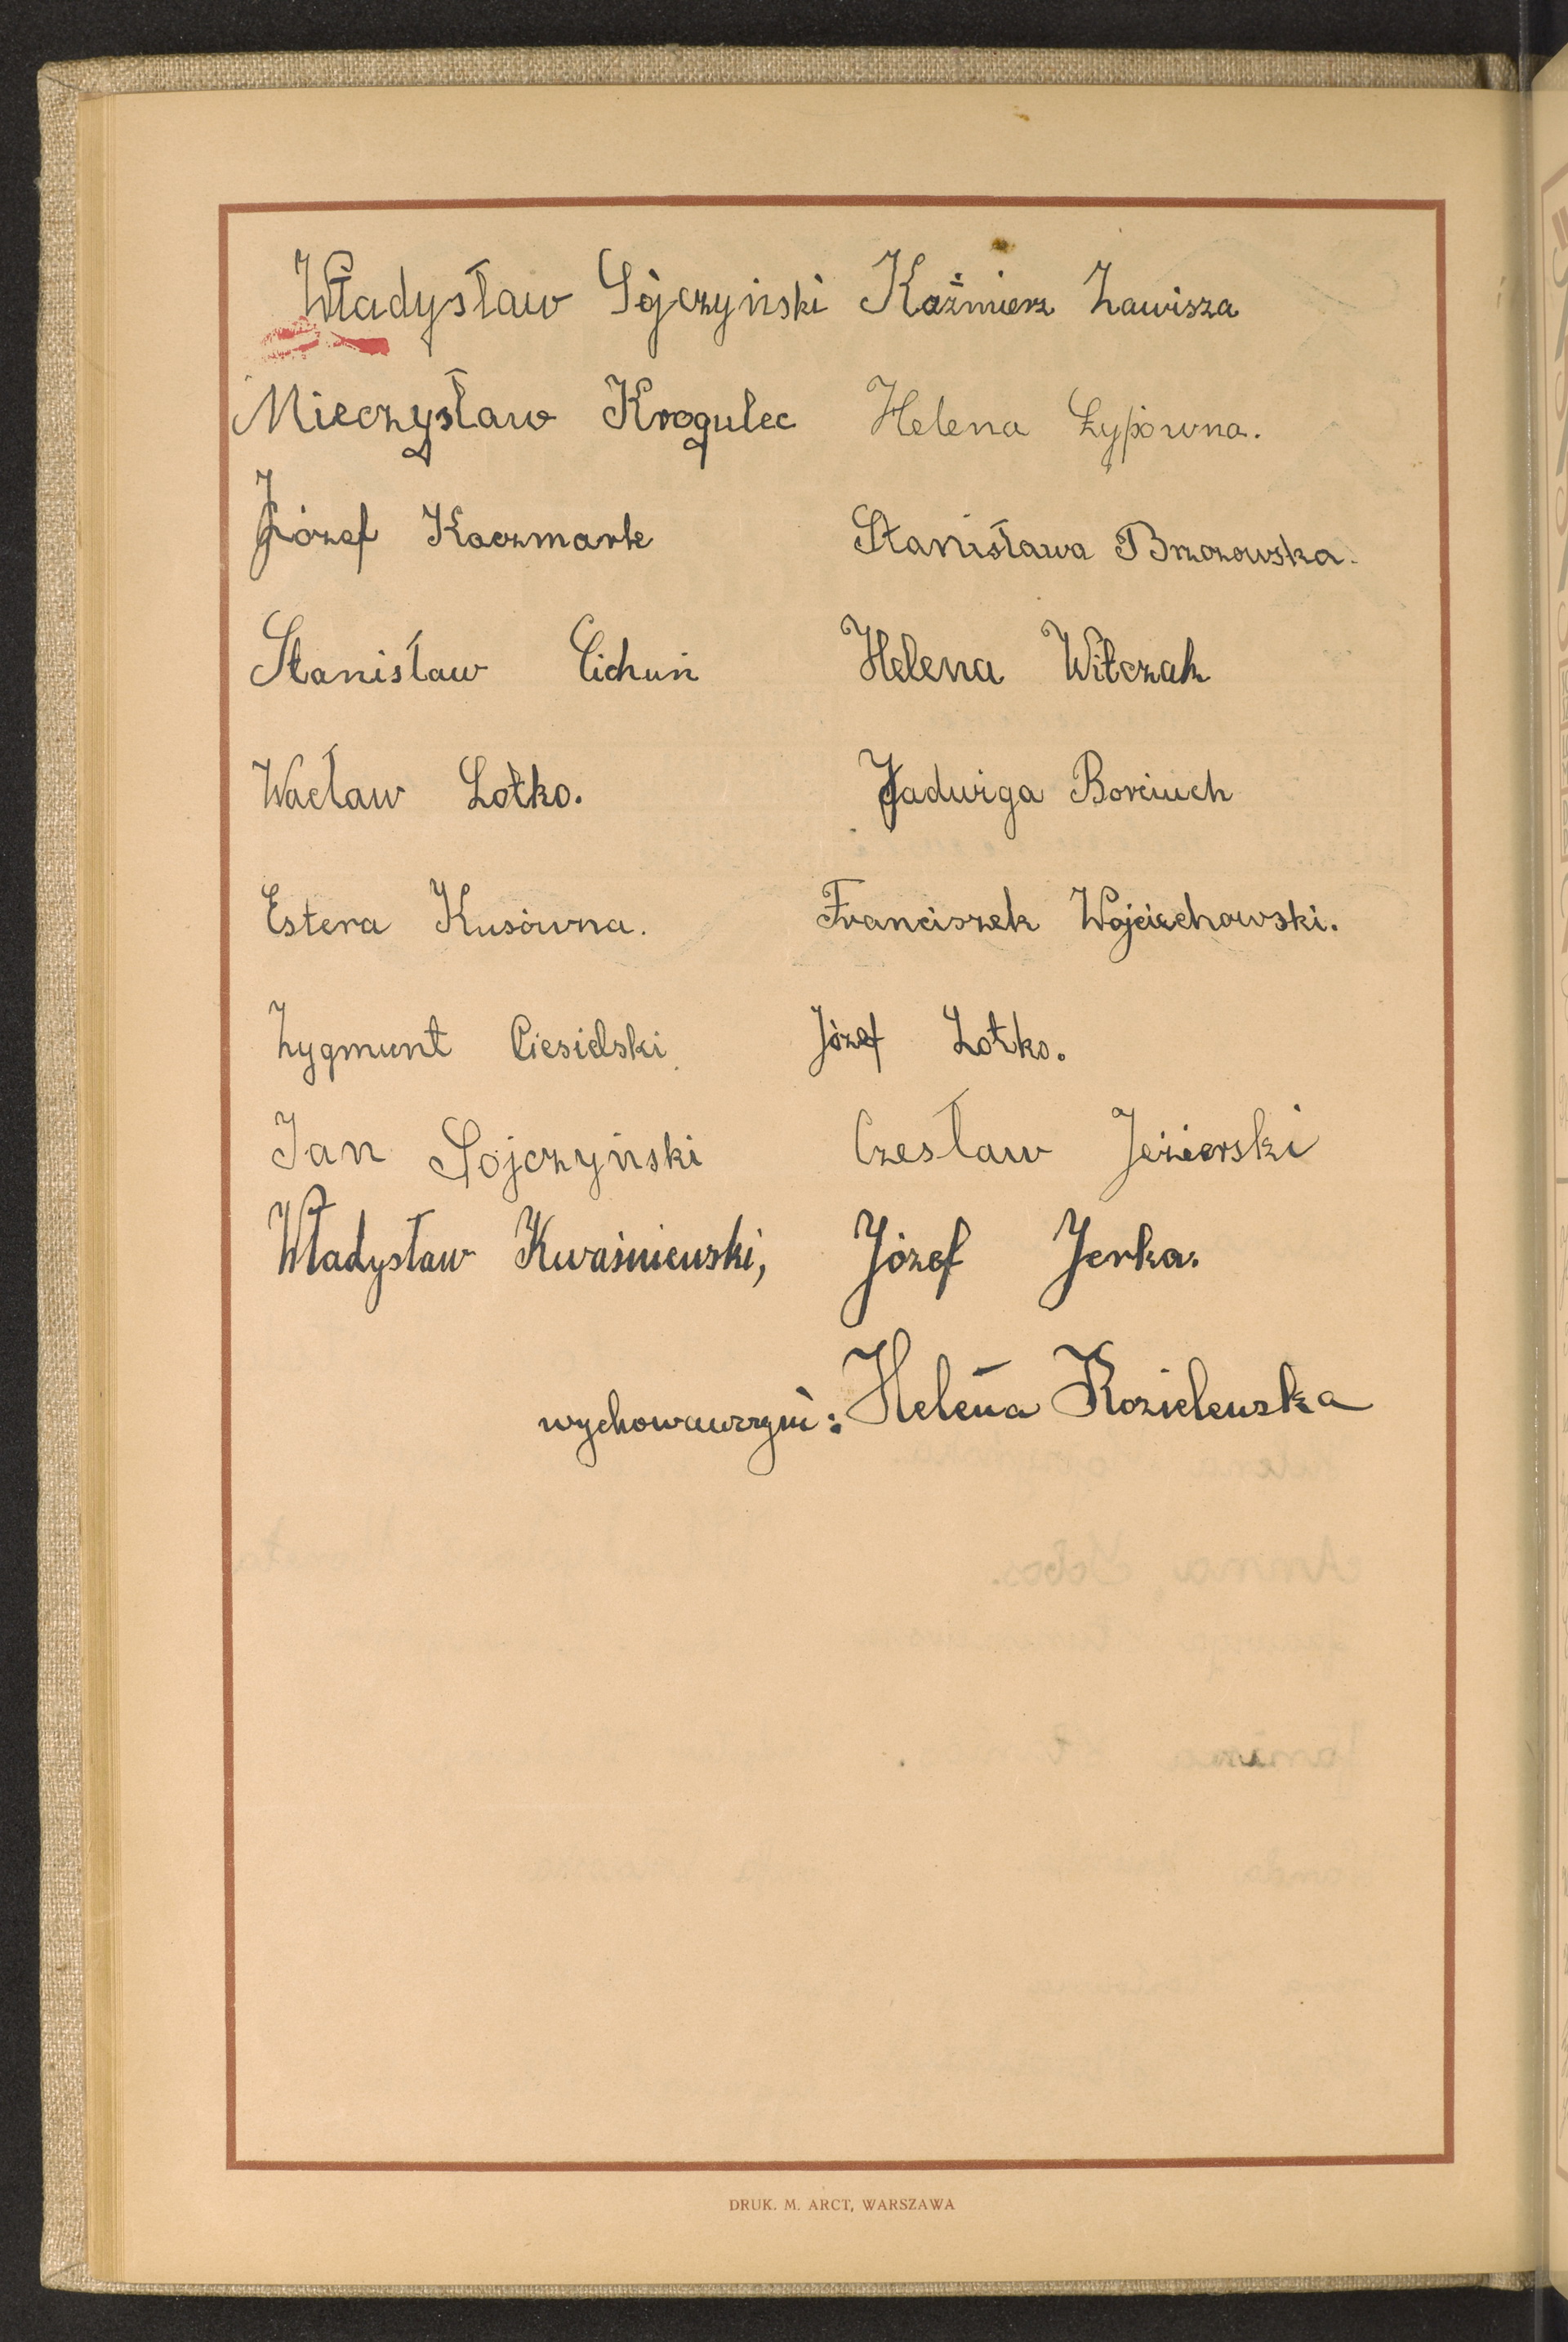 Władysław Sójczyński Kaźmierz Zawisza
Mieczysław Krogulec Helena Łypówna.
Józef Kaczmark Stanisława Brzozowska.
Stanisław Cichuń Helena Witczak
Wacław Lotko. Jadwiga Borciuch
Estera Kusówna. Franciszek Wojciechowski.
Zygmunt Ciesielski Józef Lotko.
Jan Sojczyński Czesław Jezierski
Władysław Kwaśniewski, Józef Jerka.
wychowawczyni: Helena Kozielewska
DRUK. M. ARCT, WARSZAWA